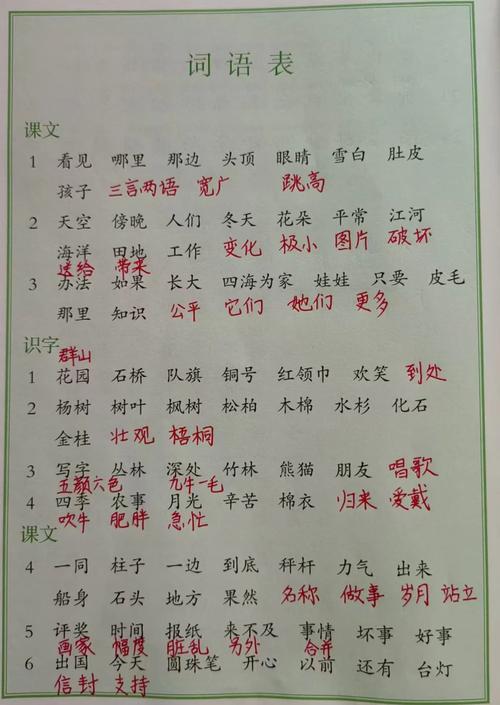 词语表
课文
1 看见 哪里 那边 头顶 眼睛 雪白 肚皮
孩子 三言两语 宽广 跳高
2 天空 傍晚 人们 冬天 花朵 平常 江河
海洋 田地 工作 变化 极小 图片 破坏
送给 带来
3 办法 如果 长大 四海为家 娃娃 只要 皮毛
那里 知识 公平 它们 她们 更多
识字
群山
1 花园 石桥 队旗 铜号 红领巾 欢笑 到处
2 杨树 树叶 枫树 松柏 木棉 水杉 化石
金桂 壮观 梧桐
3 写字 丛林 深处 竹林 熊猫 朋友 唱歌
五颜六色 九牛一毛
4 四季 农事 月光 辛苦 棉衣 归来 爱戴
吹牛 肥胖 急忙
课文
4 一同 柱子 一边 到底 秤杆 力气 出来
船身 石头 地方 果然 名称 做事 岁月 站立
5 评奖 时间 报纸 来不及 事情 坏事 好事
画家 幅度 脏乱 另外 合并
6 出国 今天 圆珠笔 开心 以前 还有 台灯
信封 支持